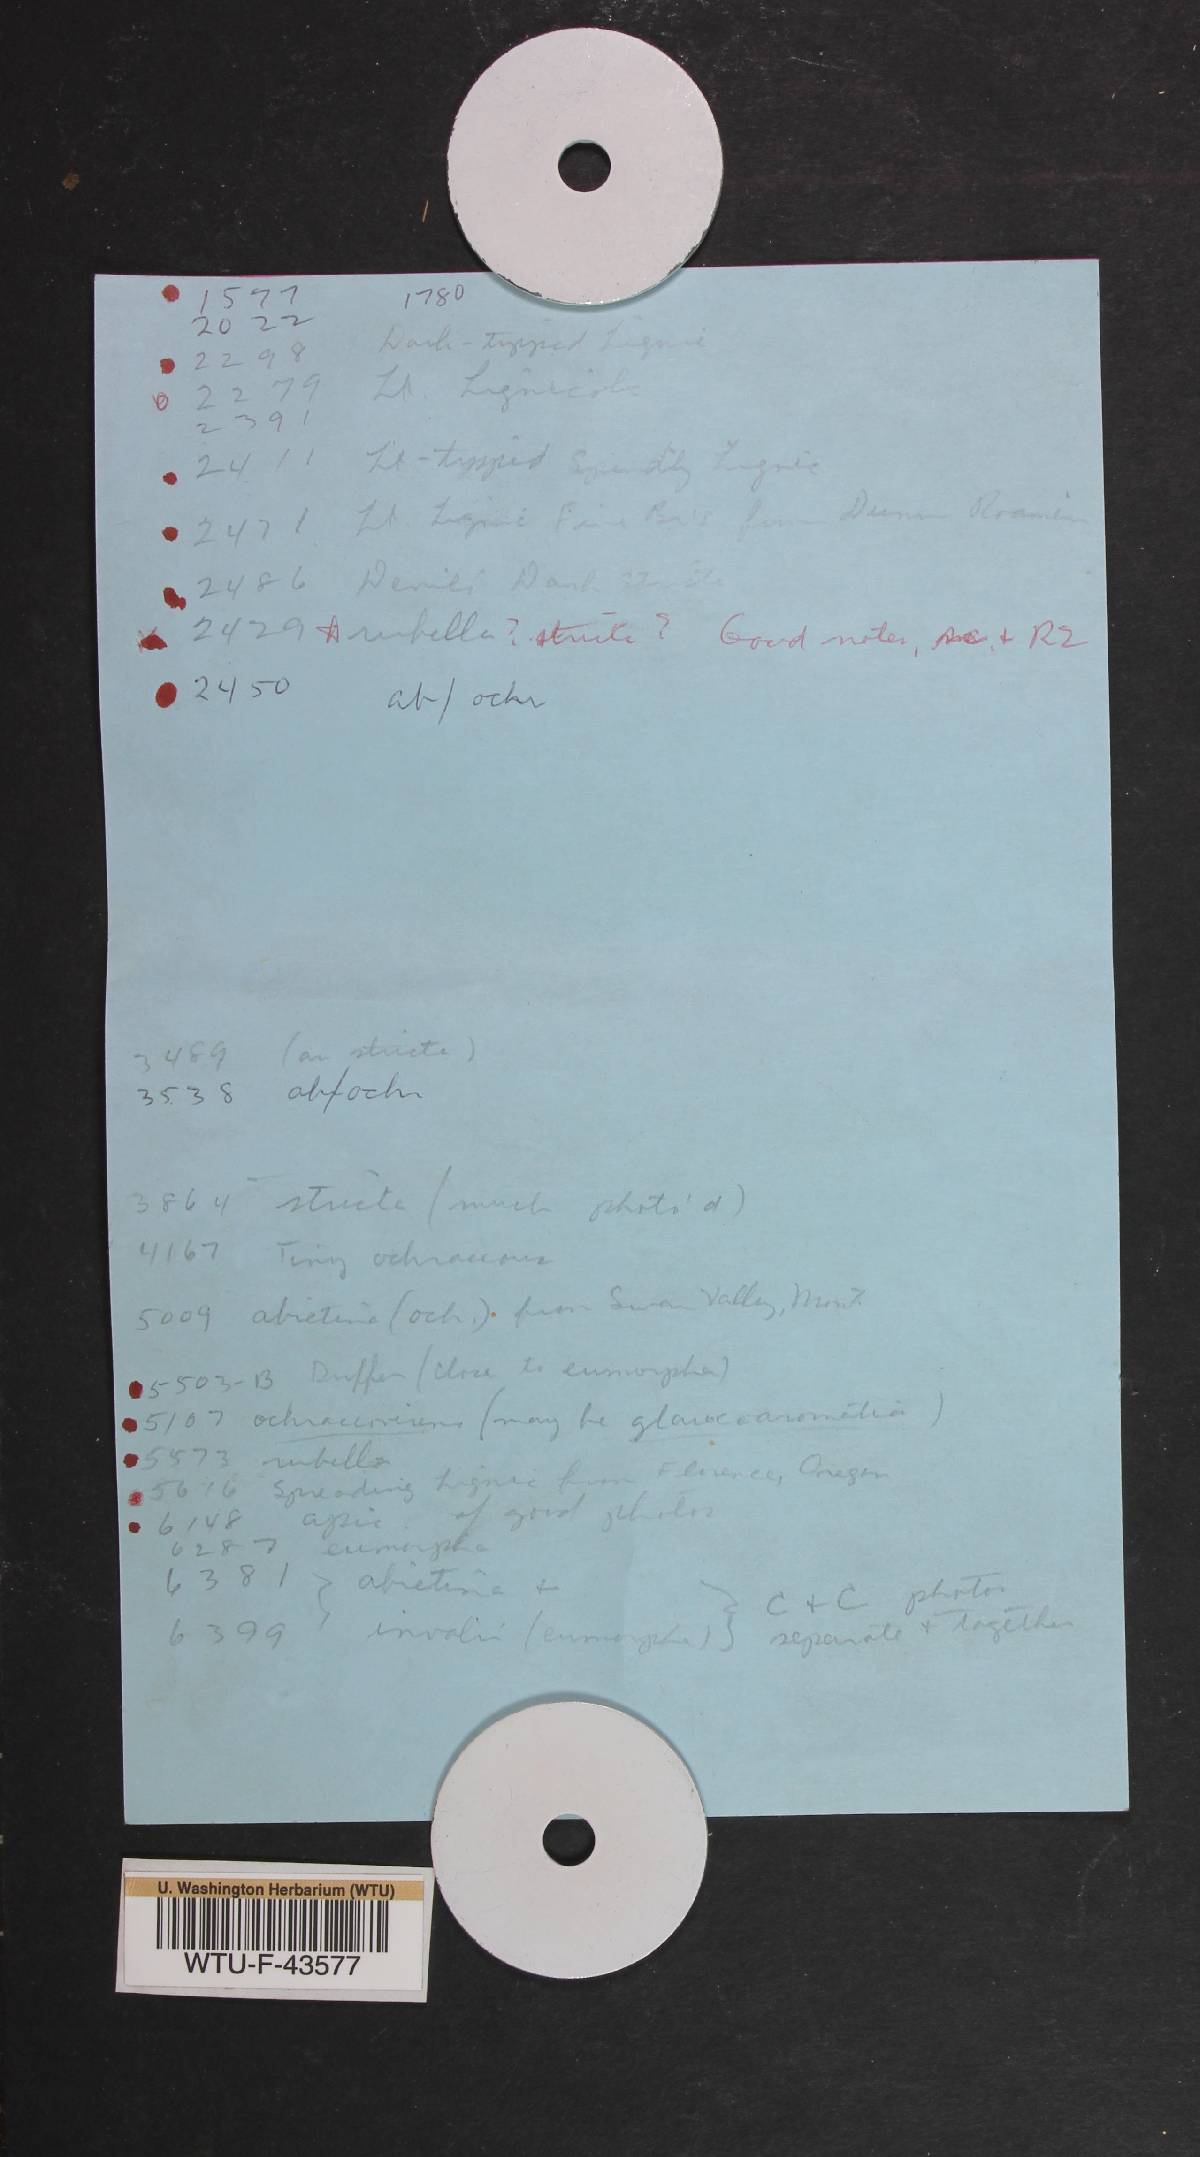 1577 1780
2022
2298 Dark-tipped Lignic
2279 Lt. Lignicola
2391
2411 Lt-tipped Spindly Lignic
2471 Lt. Lignic from
2486 Dark stricta
2429 rubella? stricta? Good notes, + R2
2450 ab/ochr
3489 (an stricta)
3538 ab/ochr
3864 stricta (much photo'd)
4167 Tiny ochraceous
5009 abietina (ochr.). from Swan Valley, Mont.
5503-B Duffer (close to eumorpha)
5107 ochraceovirens (may be glaucoaromatica)
5573 rubella
5616 Spreading Lignic from Florence, Oregon
6148 apic. of good photos
6287 eumorpha
6381 } abietina + } C + C photos
6399 invalii (eumorpha) separate + together
U. Washington Herbarium (WTU)
WTU-F-43577